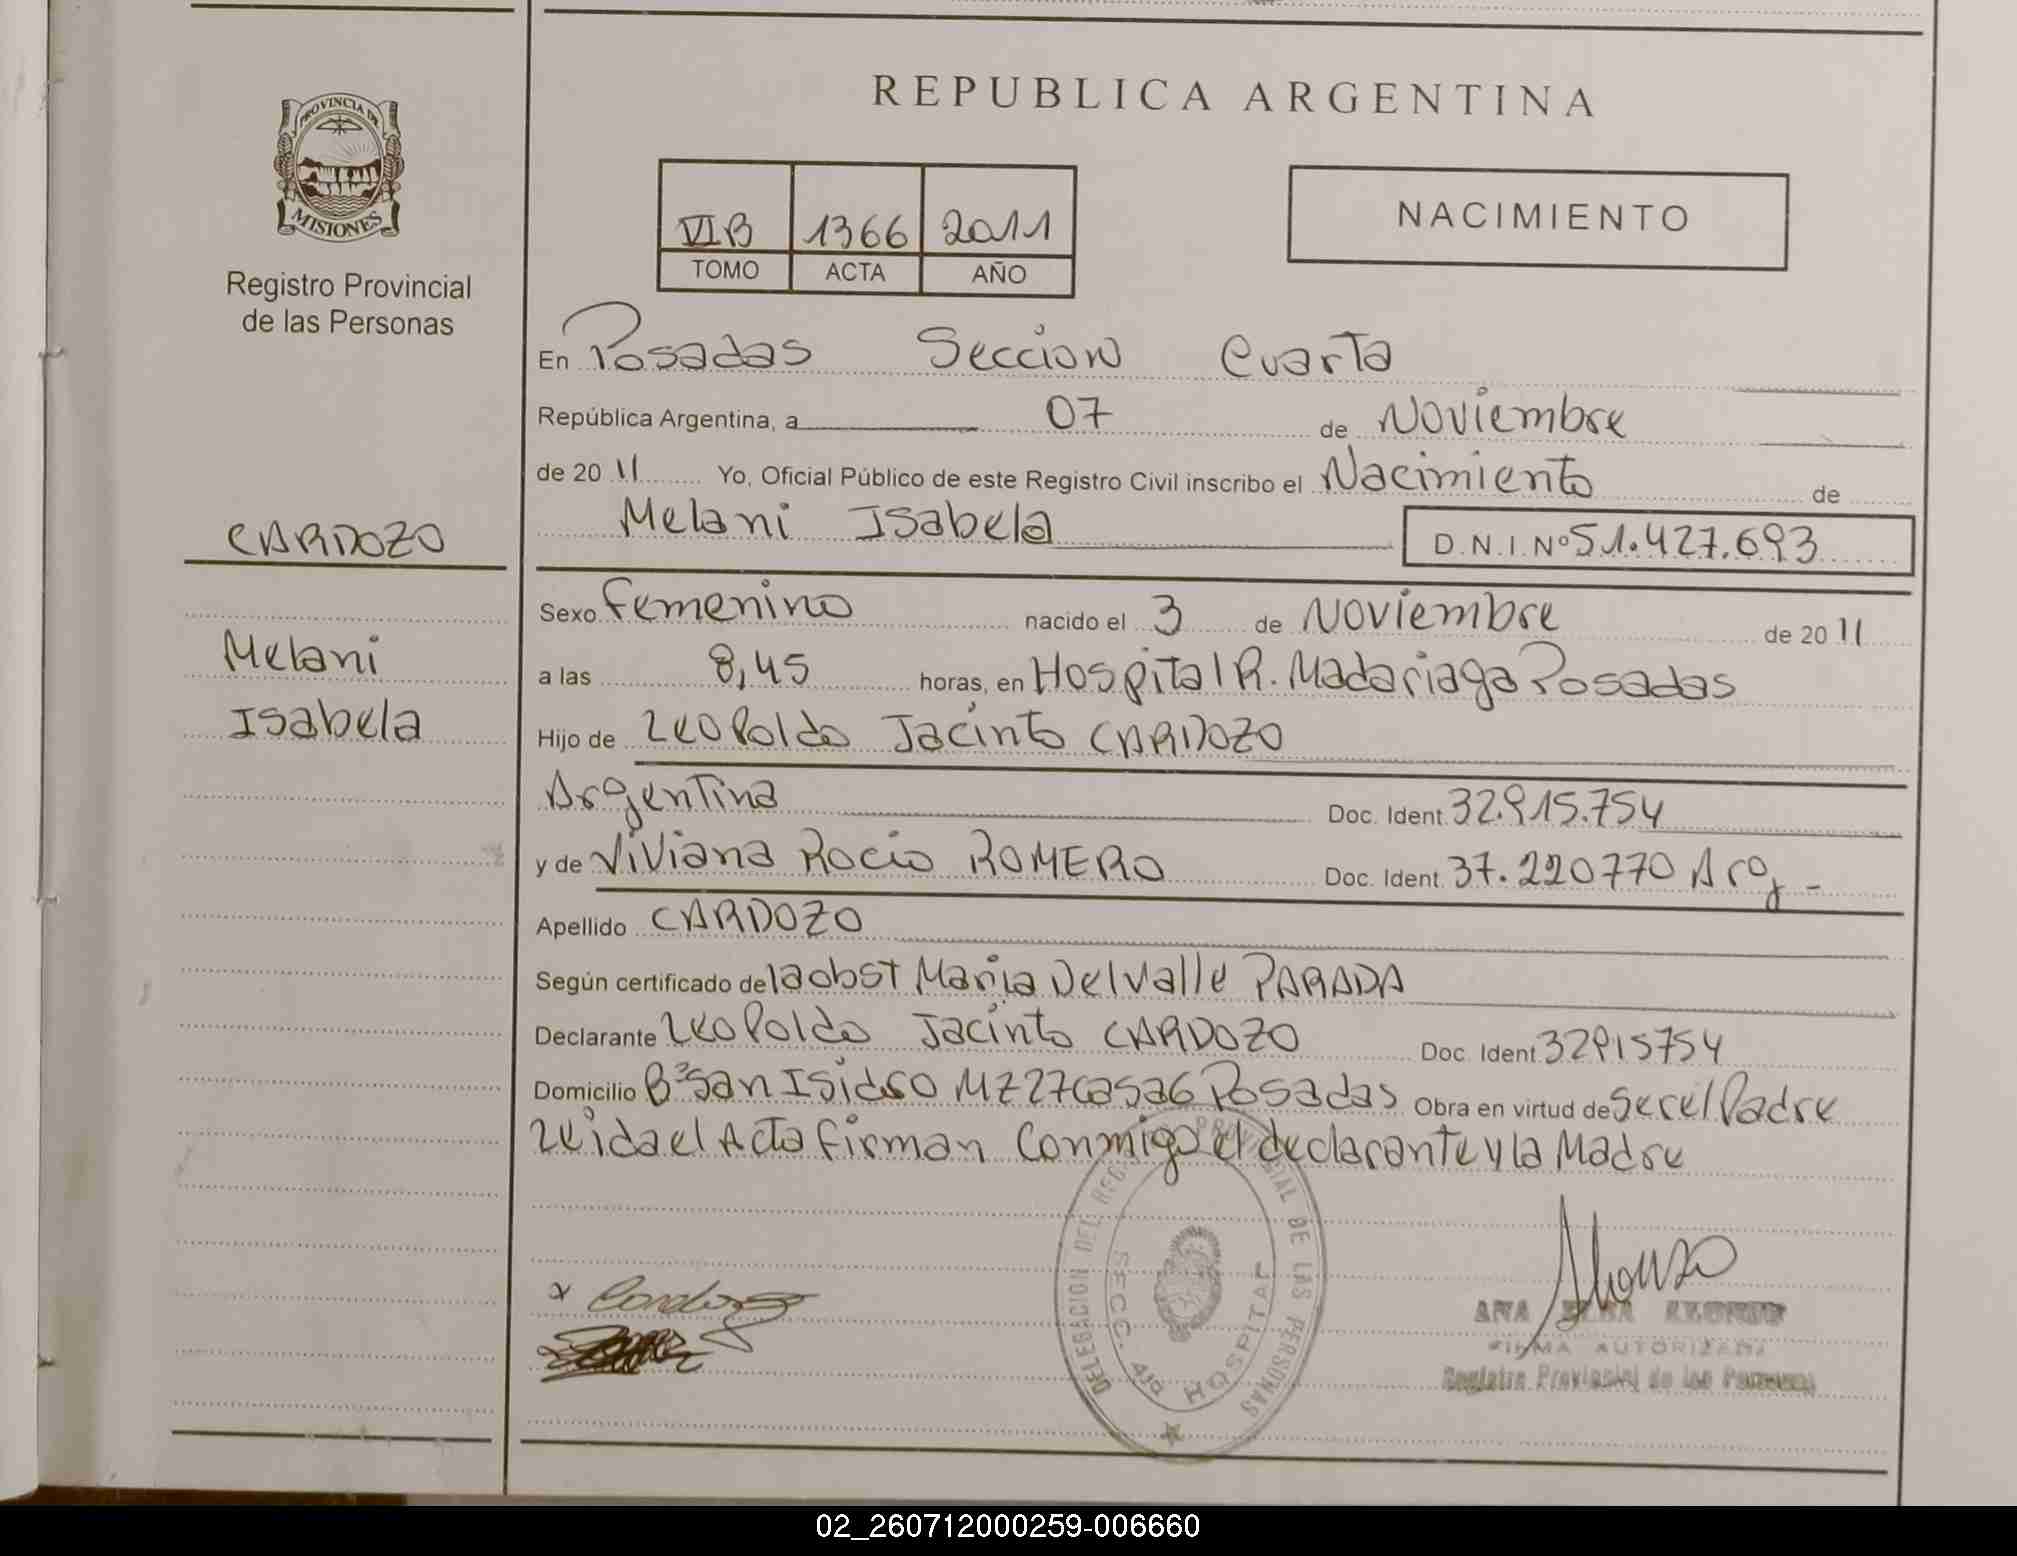 REPUBLICA ARGENTINA
PROVINCIA DE
MISIONES
Registro Provincial
de las Personas
VI B 1366 2011
TOMO ACTA AÑO
NACIMIENTO
En Posadas Seccion Cuarta
República Argentina, a 07 de Noviembre
de 20 11 Yo, Oficial Público de este Registro Civil inscribo el Nacimiento de
Melani Isabela D.N.I.Nº 51.427.693
CARDOZO
Sexo Femenino nacido el 3 de Noviembre de 20 11
Melani
a las 8,45 horas, en Hospital R. Madariaga Posadas
Isabela
Hijo de Leopoldo Jacinto CARDOZO
Argentina Doc. Ident. 32.915.754
y de Viviana Rocio ROMERO Doc. Ident. 37.220770 Arg -
Apellido CARDOZO
Según certificado de la obst Maria Del Valle PARADA
Declarante Leopoldo Jacinto CARDOZO Doc. Ident. 32915754
Domicilio Bº San Isidro MZ 27 Casa 6 Posadas Obra en virtud de Ser el Padre
Leida el Acta Firman Conmigo el declarante y la Madre
DELEGACION DEL REG. PROVINCIAL DE LAS PERSONAS
SECC. 4ta HOSPITAL
x Cardozo
Alonso
ANA ALONSO
FIRMA AUTORIZADA
Registro Provincial de las Personas
02_260712000259-006660